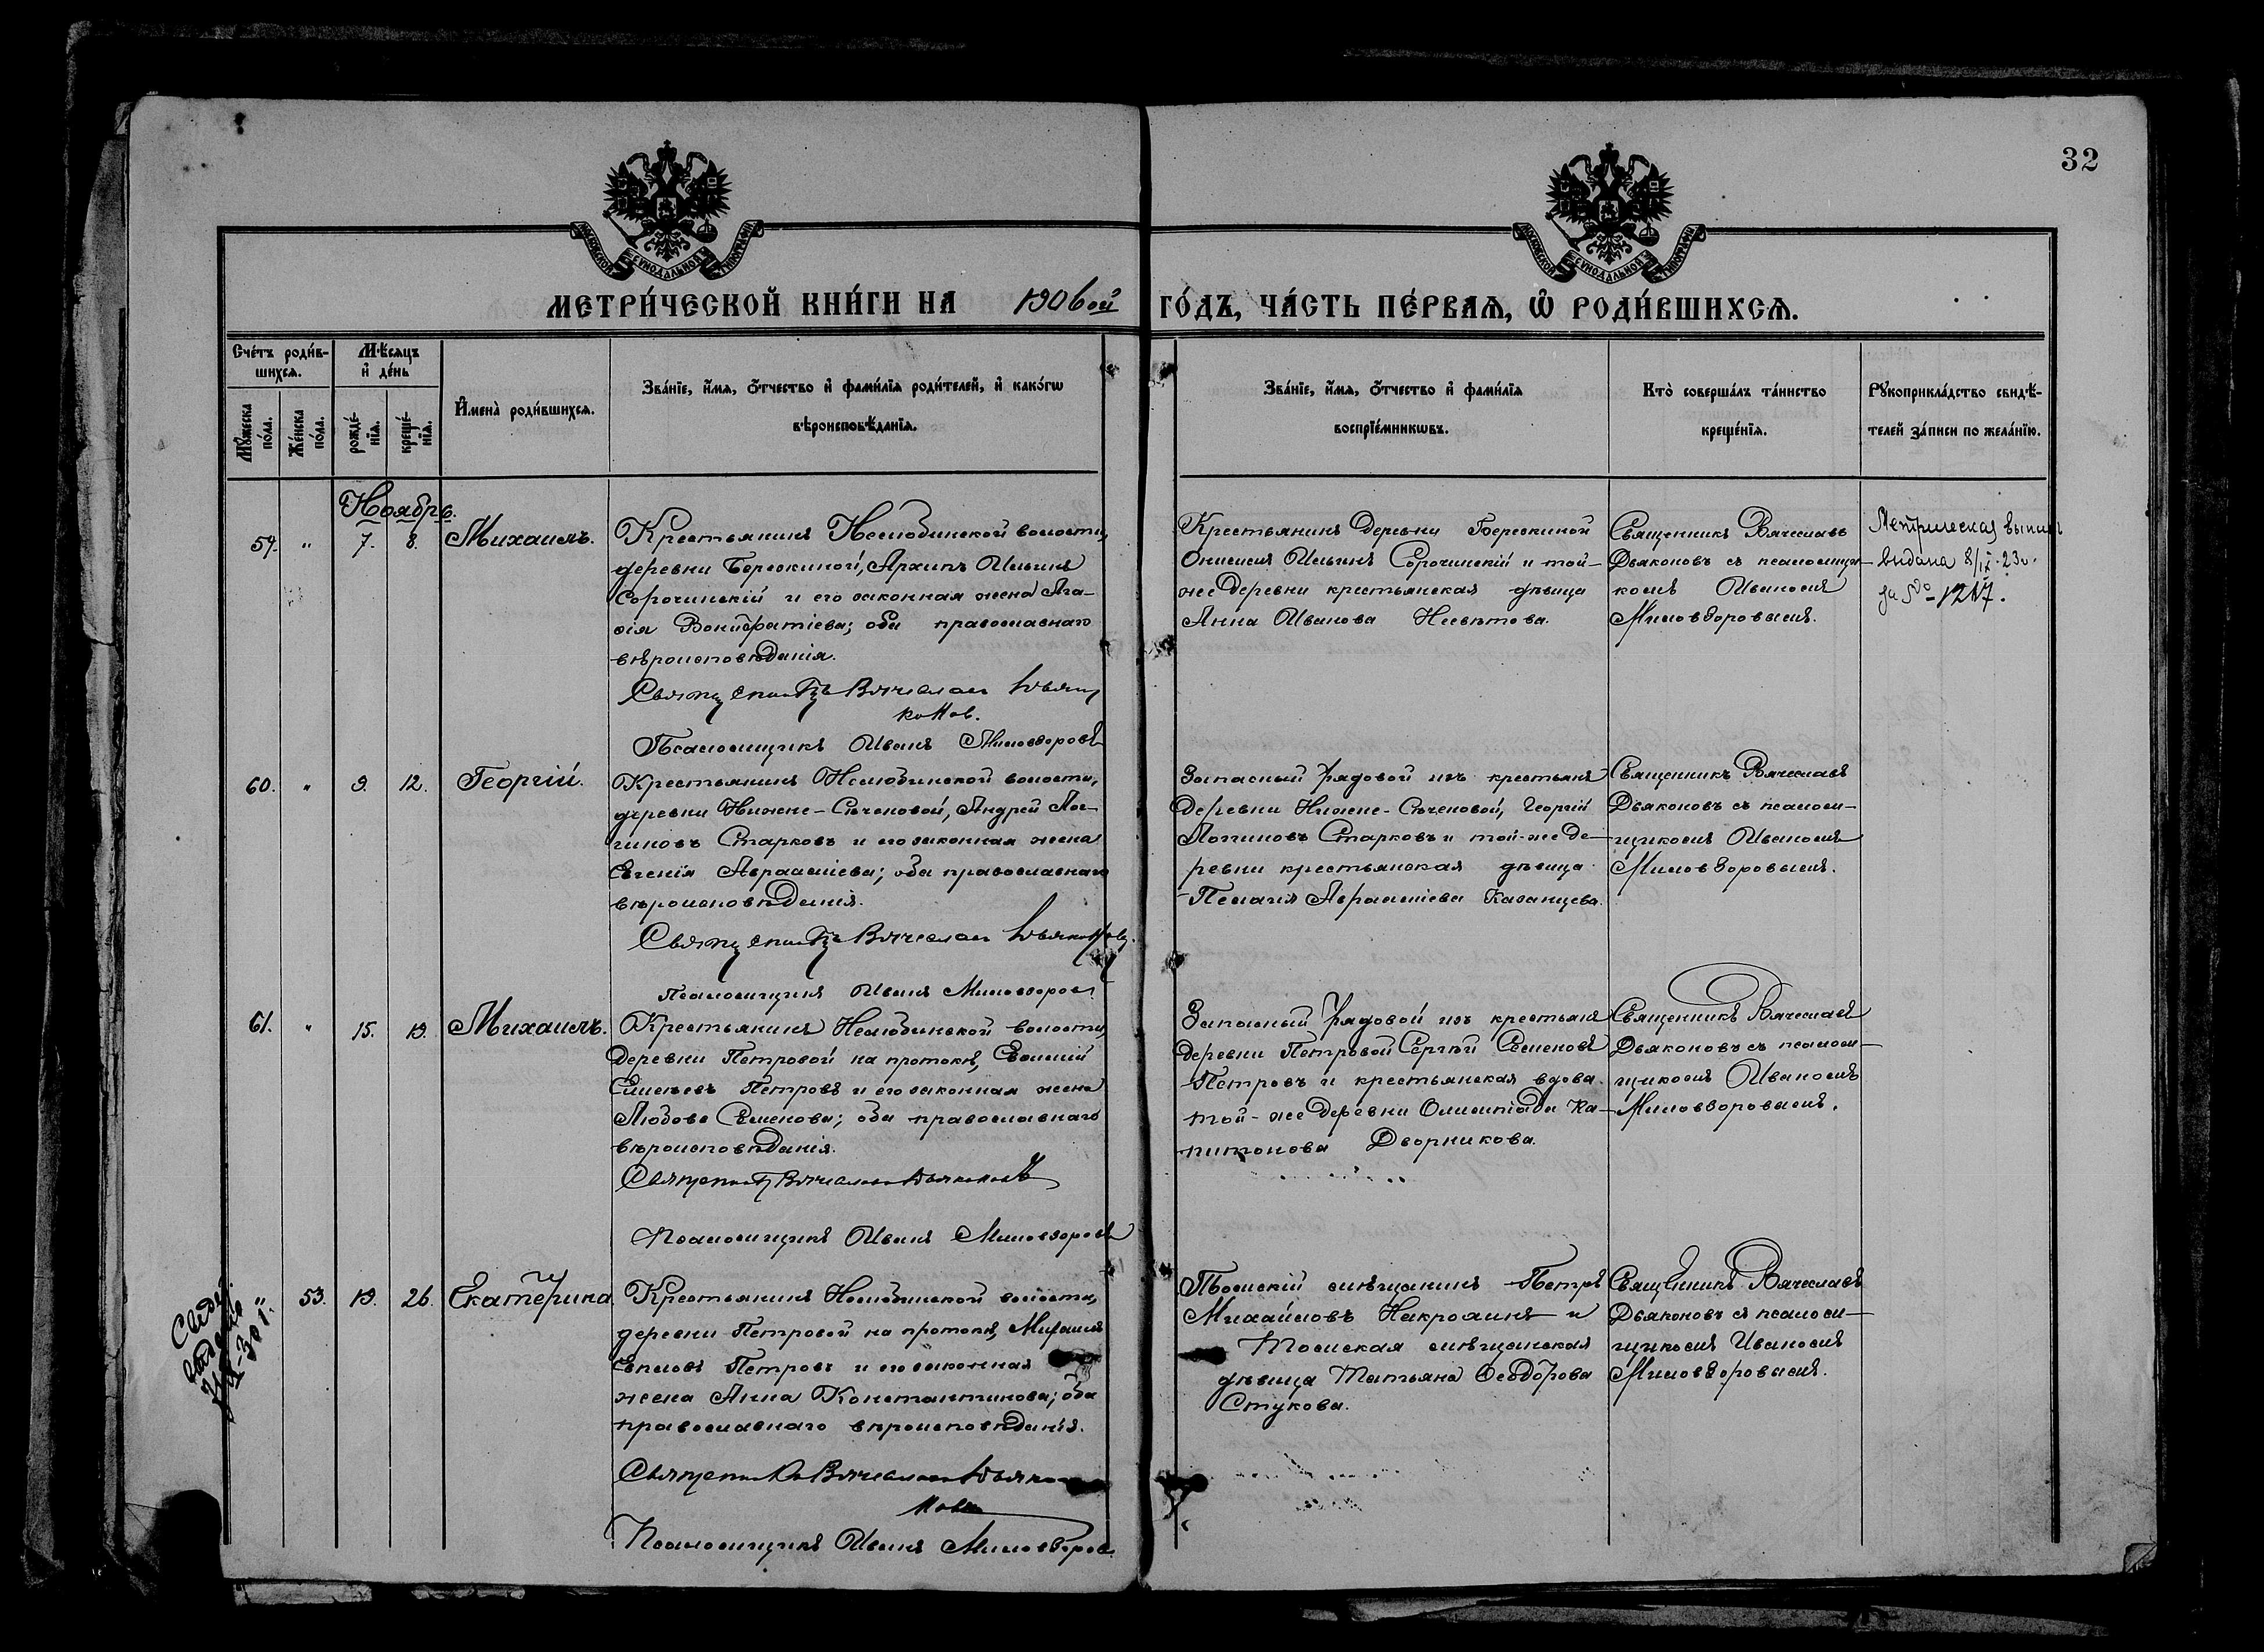 32
МОСКОВСКОЙ СѴНОДАЛЬНОЙ ТИПОГРАФІИ
МОСКОВСКОЙ СѴНОДАЛЬНОЙ ТИПОГРАФІИ
МЕТРИ́ЧЕСКОЙ КНИ́ГИ НА 1906ой ГО́ДЪ, ЧА́СТЬ ПЕ́РВАѦ, Ѡ҆ РОДИ́ВШИХСѦ.
Сче́тъ роди́в-
шихсѧ.
Мѣ́сѧцъ
и҆ де́нь
Мꙋ́жеска
по́ла.
Же́нска
по́ла.
рожде́-
нїѧ.
креще́-
нїѧ.
И҆мена̀ роди́вшихсѧ.
Зва́нїе, и҆́мѧ, ѻ҆́тчество и҆ фами́лїѧ роди́телей, и҆ како́гѡ
вѣроисповѣ́данїѧ.
Зва́нїе, и҆́мѧ, ѻ҆́тчество и҆ фами́лїѧ
воспрїе́мникѡвъ.
Кто̀ соверша́лъ та́инство
креще́нїѧ.
Рꙋкоприкла́дство свидѣ́-
телей за́писи по жела́нїю.
Ноябрь.
59. " 7. 8. Михаилъ.
Крестьянинъ Нелюбинской волости,
деревни Березкиной, Архипъ Ильинъ
Сорочинскій и его законная жена Ага-
ѳія Вонифатіева; оба православнаго
вѣроисповѣданія.
Священникъ Вячеслав Дьяко
нов.
Псаломщикъ Иванъ Миловзоровъ
Крестьянинъ деревни Березкиной
Онисимъ Ильинъ Сорочинскій и той-
же деревни крестьянская дѣвица
Анна Иванова
Священникъ Вячеславъ
Дьяконовъ съ псаломщи-
комъ Иваномъ
Миловзоровымъ.
Метрическая выпись
выдана 8/IX-23г.
за № 1217.
60. " 9. 12. Георгій.
Крестьянинъ Нелюбинской волости,
деревни Нижне-Сѣченовой, Андрей Лог-
гиновъ Старковъ и его законная жена
Евгенія Авраамиева; оба православнаго
вѣроисповѣданія.
Священникъ Вячеслав Дьяконовъ.
Псаломщикъ Иванъ Миловзоров.
Запасный рядовой изъ крестьянъ
деревни Нижне-Сѣченовой, Георгій
Логгиновъ Старковъ и той-же де-
ревни крестьянская дѣвица
Пелагія Авраамиева Казанцева.
Священникъ Вячеславъ
Дьяконовъ съ псалом-
щикомъ Иваномъ
Миловзоровымъ.
61. " 15. 19. Михаилъ.
Крестьянинъ Нелюбинской волости,
деревни Петровой на протокѣ, Евѳимій
Петровъ и его законная жена
Любовь Семенова; оба православнаго
вѣроисповѣданія.
Священникъ Вячеслав Дьяконовъ
Псаломщикъ Иванъ Миловзоровъ
Запасный рядовой изъ крестьянъ
деревни Петровой Сергѣй Семеновъ
Петровъ и крестьянская вдова
той-же деревни Олимпіада Ка-
питонова Дворникова.
Священникъ Вячеславъ
Дьяконовъ съ псалом-
щикомъ Иваномъ
Миловзоровымъ.
" 53. 19. 26. Екатерина
Крестьянинъ Нелюбинской волости,
деревни Петровой на протокѣ, Михаилъ
Петровъ и его законная
жена Анна Константинова; оба
православнаго вѣроисповѣданія.
Священникъ Вячеслав Дьяко
новъ
Псаломщикъ Иванъ Миловзоров
Томскій мѣщанинъ Петръ
Михайловъ и
Томская мѣщанская
дѣвица Татьяна Ѳеодорова
Стукова.
Священникъ Вячеславъ
Дьяконовъ съ псалом-
щикомъ Иваномъ
Миловзоровымъ.